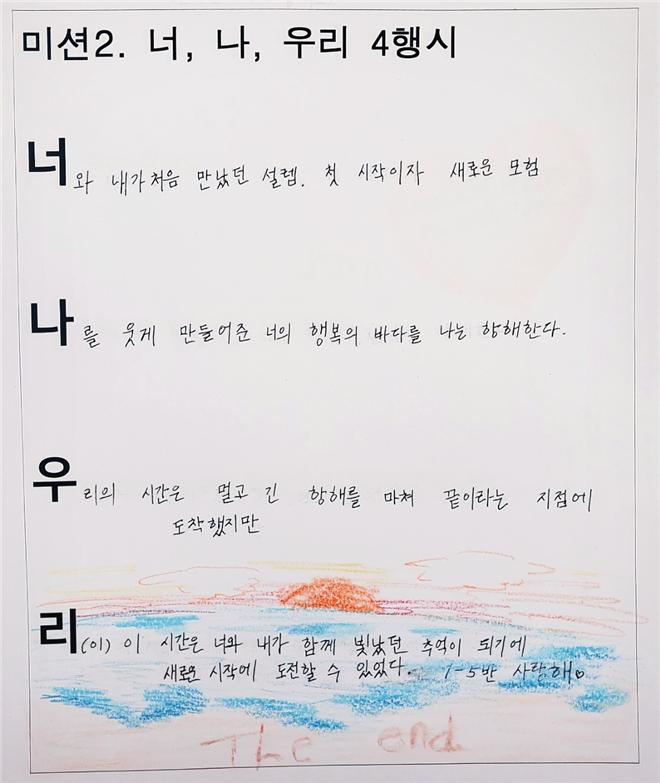 미션2. 너, 나, 우리 4행시
너와 내가 처음 만났던 설렘. 첫 시작이자 새로운 모험
나를 웃게 만들어준 너의 행복의 바다를 나는 항해한다.
우리의 시간은 멀고 긴 항해를 마쳐 끝이라는 지점에
도착했지만
리(이) 이 시간은 너와 내가 함께 빛났던 추억이 되기에
새로운 시작에 도전할 수 있었다. 1-5반 사랑해♡
The end